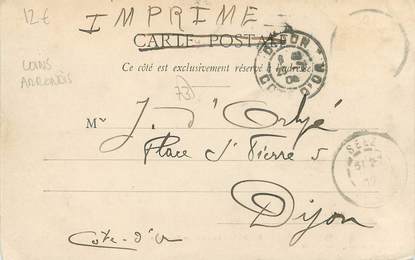 12€
IMPRIME
CARTE POSTALE
Ce côté est exclusivement réservé à l'adresse.
COINS
ARRONDIS
73
DIJON
COTE D'OR
M J. d'Orbjé
Place St Pierre 5
Dijon
Côte-d'Or
SEEZ